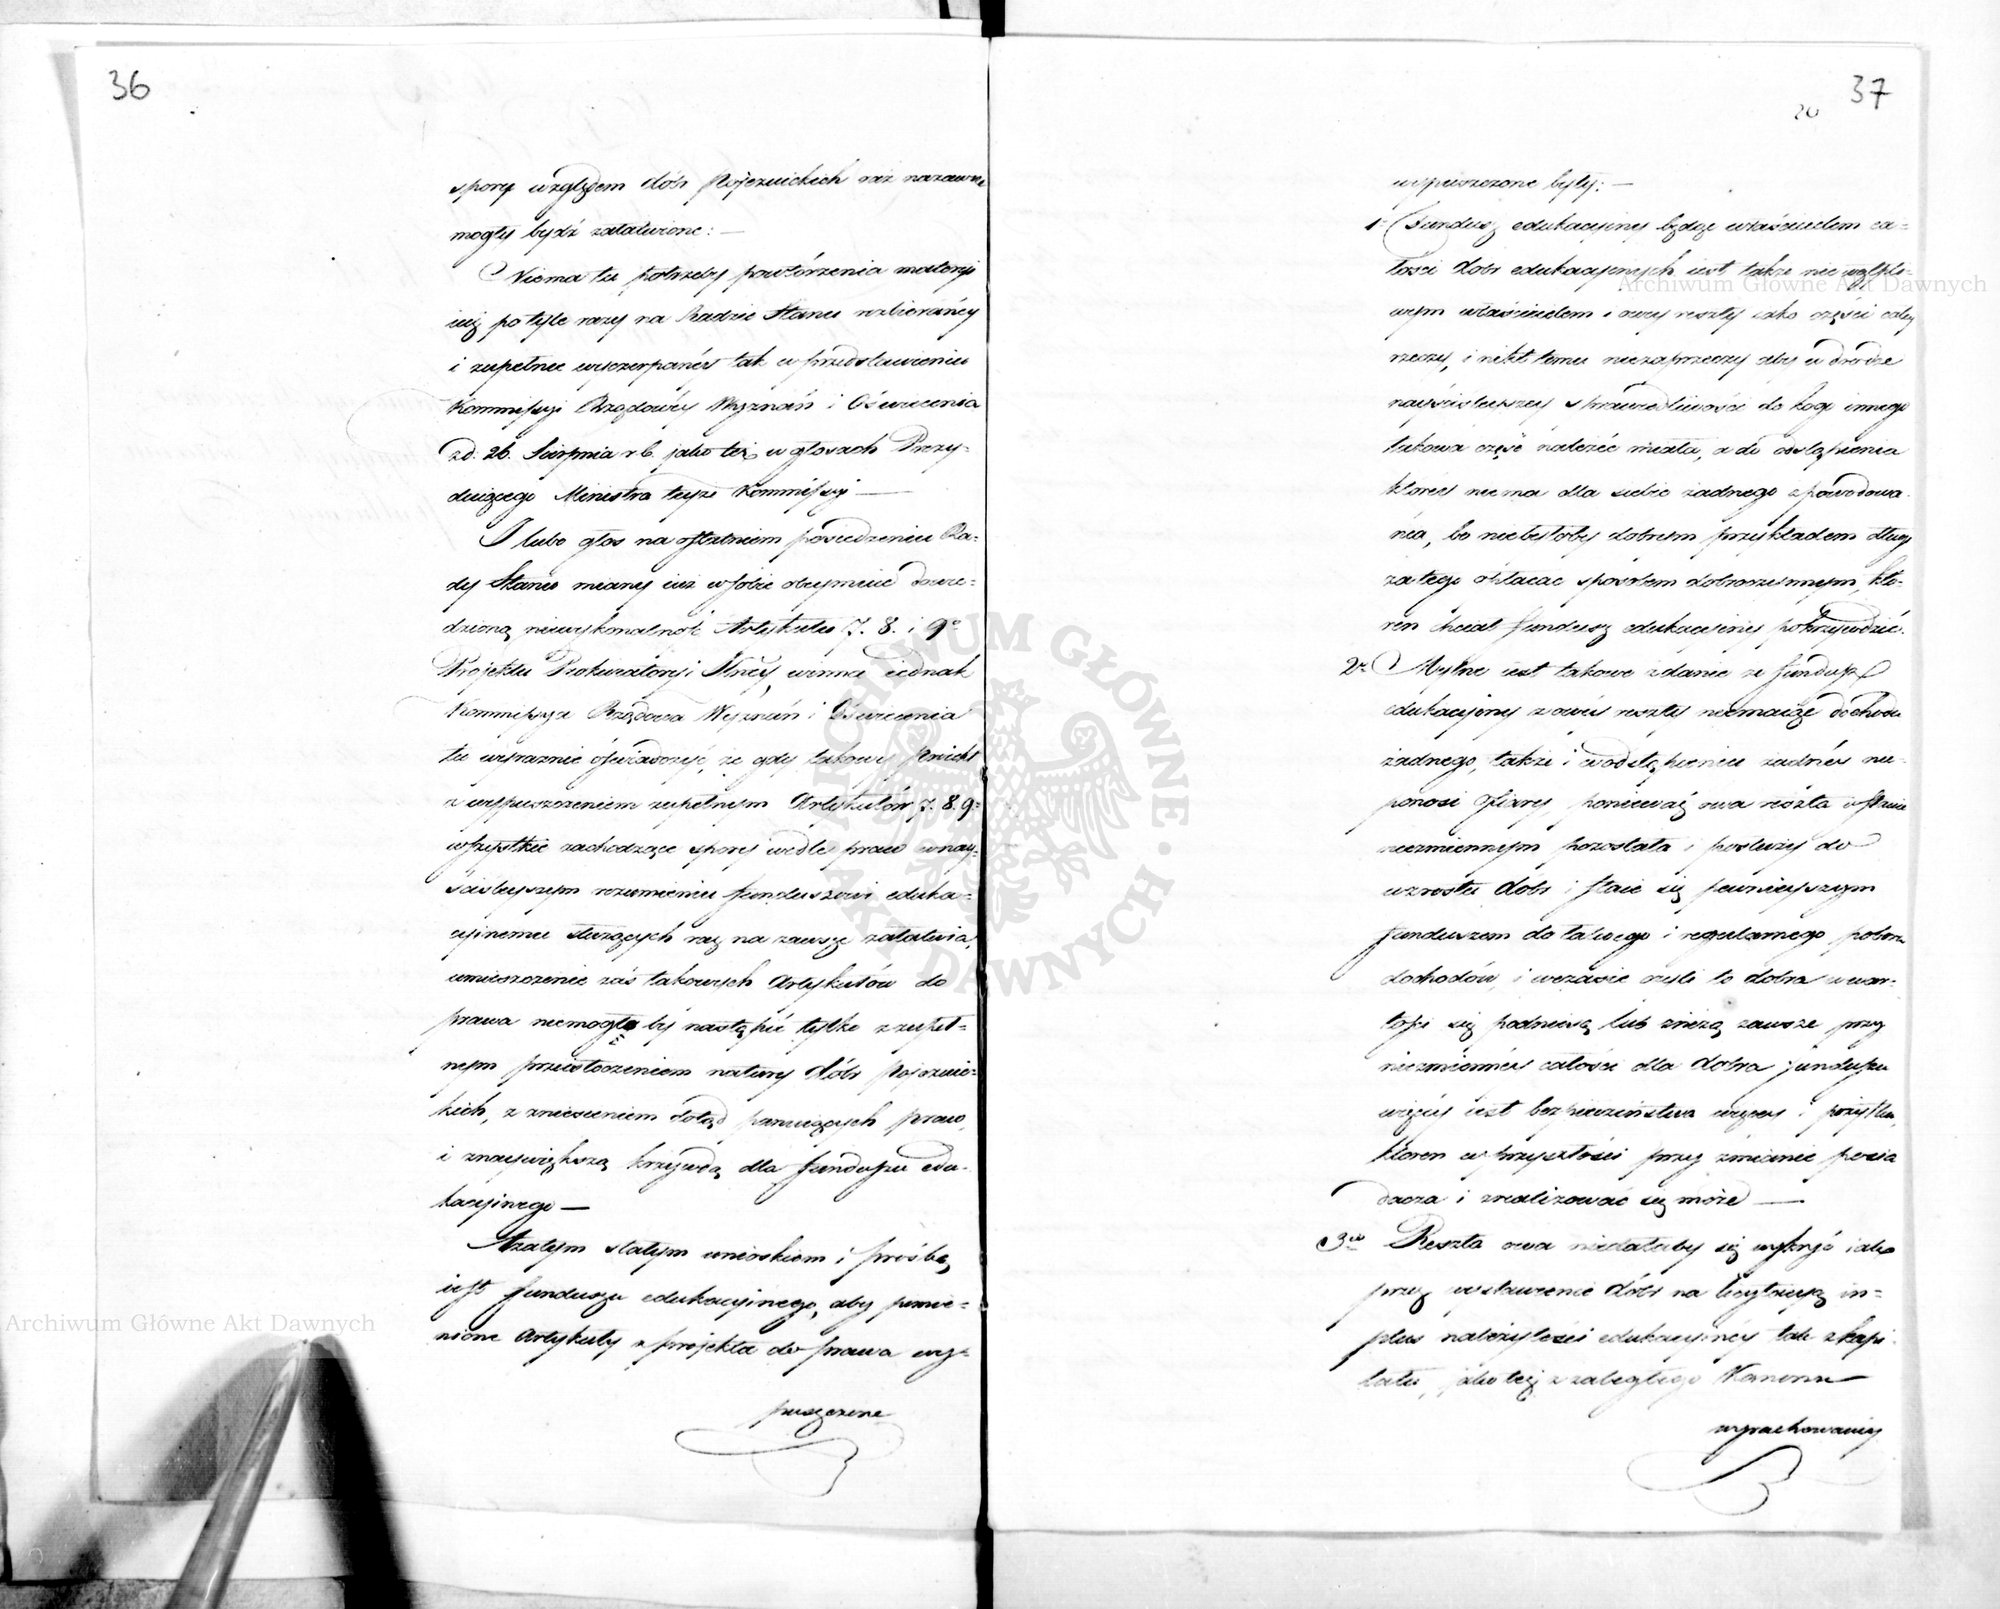 36
spory względem dóbr Pojezuickich raz nazawsze
mogły bydź załatwione: —
Niema tu potrzeby powtórzenia materyi
iuż potyle razy na Radzie Stanu rozbieranéy
i zupełnie wyczerpanéy tak w przedstawieniu
Kommissyi Rządowéy Wyznań i Oświecenia
z d. 26. Sierpnia r b. jako też w głosach Prezy-
duiącego Ministra teyże Kommissyi —
I lubo głos na ostatniem posiedzeniu Ra-
dy Stanu miany iuż w sobie obeymuie dowie-
dzioną niewykonalność Artykułu 7. 8. i 9°
Projektu Prokuratoryi Jlnéy, winna iednak
Kommissya Rządowa Wyznań i Oświecenia
tu wyraznie oświadczyć, że gdy takowy Proiekt
z wypuszczeniem zupełnym Artykułów 7. 8. 9°
wszystkie zachodzące spory wedle praw w nay-
ściśleyszym rozumieniu funduszowi eduka-
cyinemu służących raz na zawsze załatwia,
umieszczenie zaś takowych Artykułów do
prawa niemogło by nastąpić tylko z zupeł-
nym przeistoczeniem natury dóbr Pojezuic-
kich, z zniesieniem dotąd panuiących praw,
i znaywiększą krzywdą dla funduszu edu-
kacyinego —
Azatym stałym wnioskiem i prośbą
iest funduszu edukacyinego, aby pomie-
nione Artykuły z projektu do prawa wy-
puszczone
37
20
wypuszczone były: —
1° Fundusz edukacyiny będąc właścicielem ca-
łości dóbr edukacyinych iest także nie wątpli-
wym właścicielem i owey reszty iako części całey
rzeczy, i nikt temu niezaprzeczy aby w drodze
nayściśleyszey sprawiedliwości do kogo innego
takowa część należeć miała, a do odstąpienia
którey niema dla siebie żadnego spowodowa-
nia, bo niebyłoby dobrym przykładem długi
zatego opłacać sposobem dobroczynnym, któ-
ren chciał fundusz edukacyiny pokrzywdzić.
2° Mylne iest takowe zdanie że fundusz
edukacyiny z owéy reszty niemaiąc dochodu
żadnego, także i w odstąpieniu żadnéy nie-
ponosi ofiary, ponieważ owa reszta w stanie
niezmiennym pozostała i posłuży do
wzrostu dóbr i staie się pewnieyszym
funduszem do łatwego i regularnego poboru
dochodów, i wczasie czyli to dobra w war-
tości się podniosą lub zniżą zawsze przy
niezmiennéy całości dla dobra funduszu
więcéy iest bezpieczeństwa więcey i pożytku,
któren w przyszłości przy zmianie posia
dacza i zrealizować się może —
3io Reszta owa niedałaby się wykryć iako
przez wystawienie dóbr na licytacyą in-
plus należytości edukacyinéy tak z kapi-
tału, jako też z zaległego Kanonu
wyrachowaney
Archiwum Główne Akt Dawnych
Archiwum Główne Akt Dawnych
ARCHIWUM GŁÓWNE · AKT DAWNYCH ·